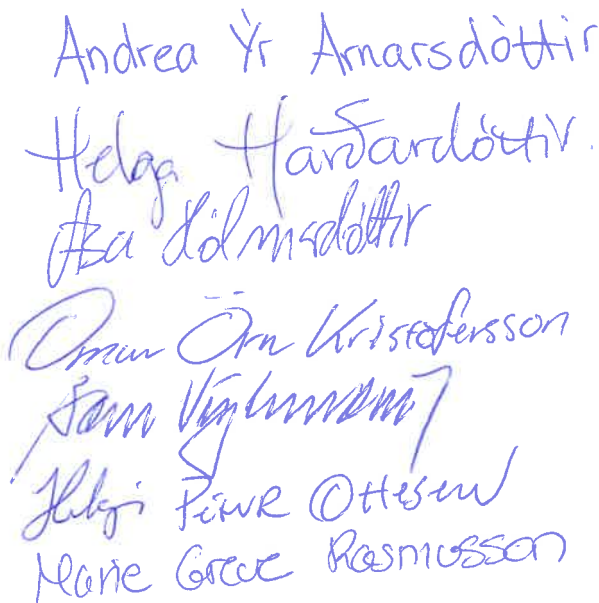 Andrea Ýr Arnarsdóttir
Helga Harðardóttir.
Ása Hólmarsdóttir
Ómar Örn Kristófersson
Helgi Pétur Ottesen
Marie Greve Rasmusson